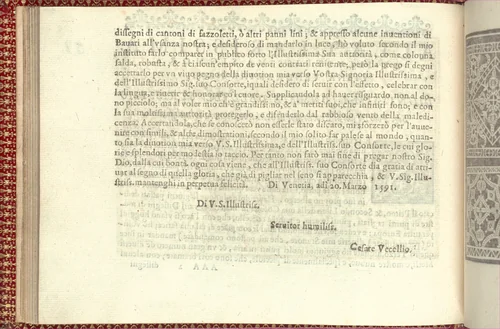 dissegni di cantoni di fazzoletti, ò altri panni lini, & appresso alcune inuentioni di
Bauari all'vsanza nostra; e desideroso di mandarlo in luce, hò voluto secondo il mio
instituto farlo comparer in publico sotto l'Illustrissima Sua auttorità, come colonna
salda, robusta, & à ciascun'empito de venti contrarij resistente, però la prego si degni
accettarlo per vn viuo pegno della diuotion mia verso Vostra Signoria Illustrissima, e
dell'Illustrissimo Sig. suo Consorte, iquali desidero di seruir con l'effetto, celebrar con
la lingua, e riuerir & honorar co'l core. Supplicandola ad hauer risguardo, non al do
no piccolo; ma al voler mio ch'è grandissimo, & a' meriti suoi, che infiniti sono; e con
la sua molta auttorità proteggerlo, e difenderlo dal rabbioso vento della maledi-
cenza; Accertandola, che se conoscerò non esserle stato discaro, mi sforzerò per l'auue-
nire con simili, & altre dimostrationi, secondo il mio solito far palese al mondo, quan-
to sia la diuotion mia verso V.S. Illustrissima, e dell'Illustriss. suo Consorte, le cui glo-
rie e splendori per modestia io taccio. Per tanto non farò mai fine di pregar nostro Sig.
Dio, dalla cui bontà ogni cosa viene, che all'Illustriss. suo Consorte dia gratia di arri-
uar al segno di quella gloria, che già di pigliar nel seno si apparecchia, & V. Sig. Illu-
striss. mantenghi in perpetua felicità. Di Venetia, adì 20. Marzo 1591.
Di V.S. Illustriss.
Seruitor humiliss.
Cesare Vecellio.